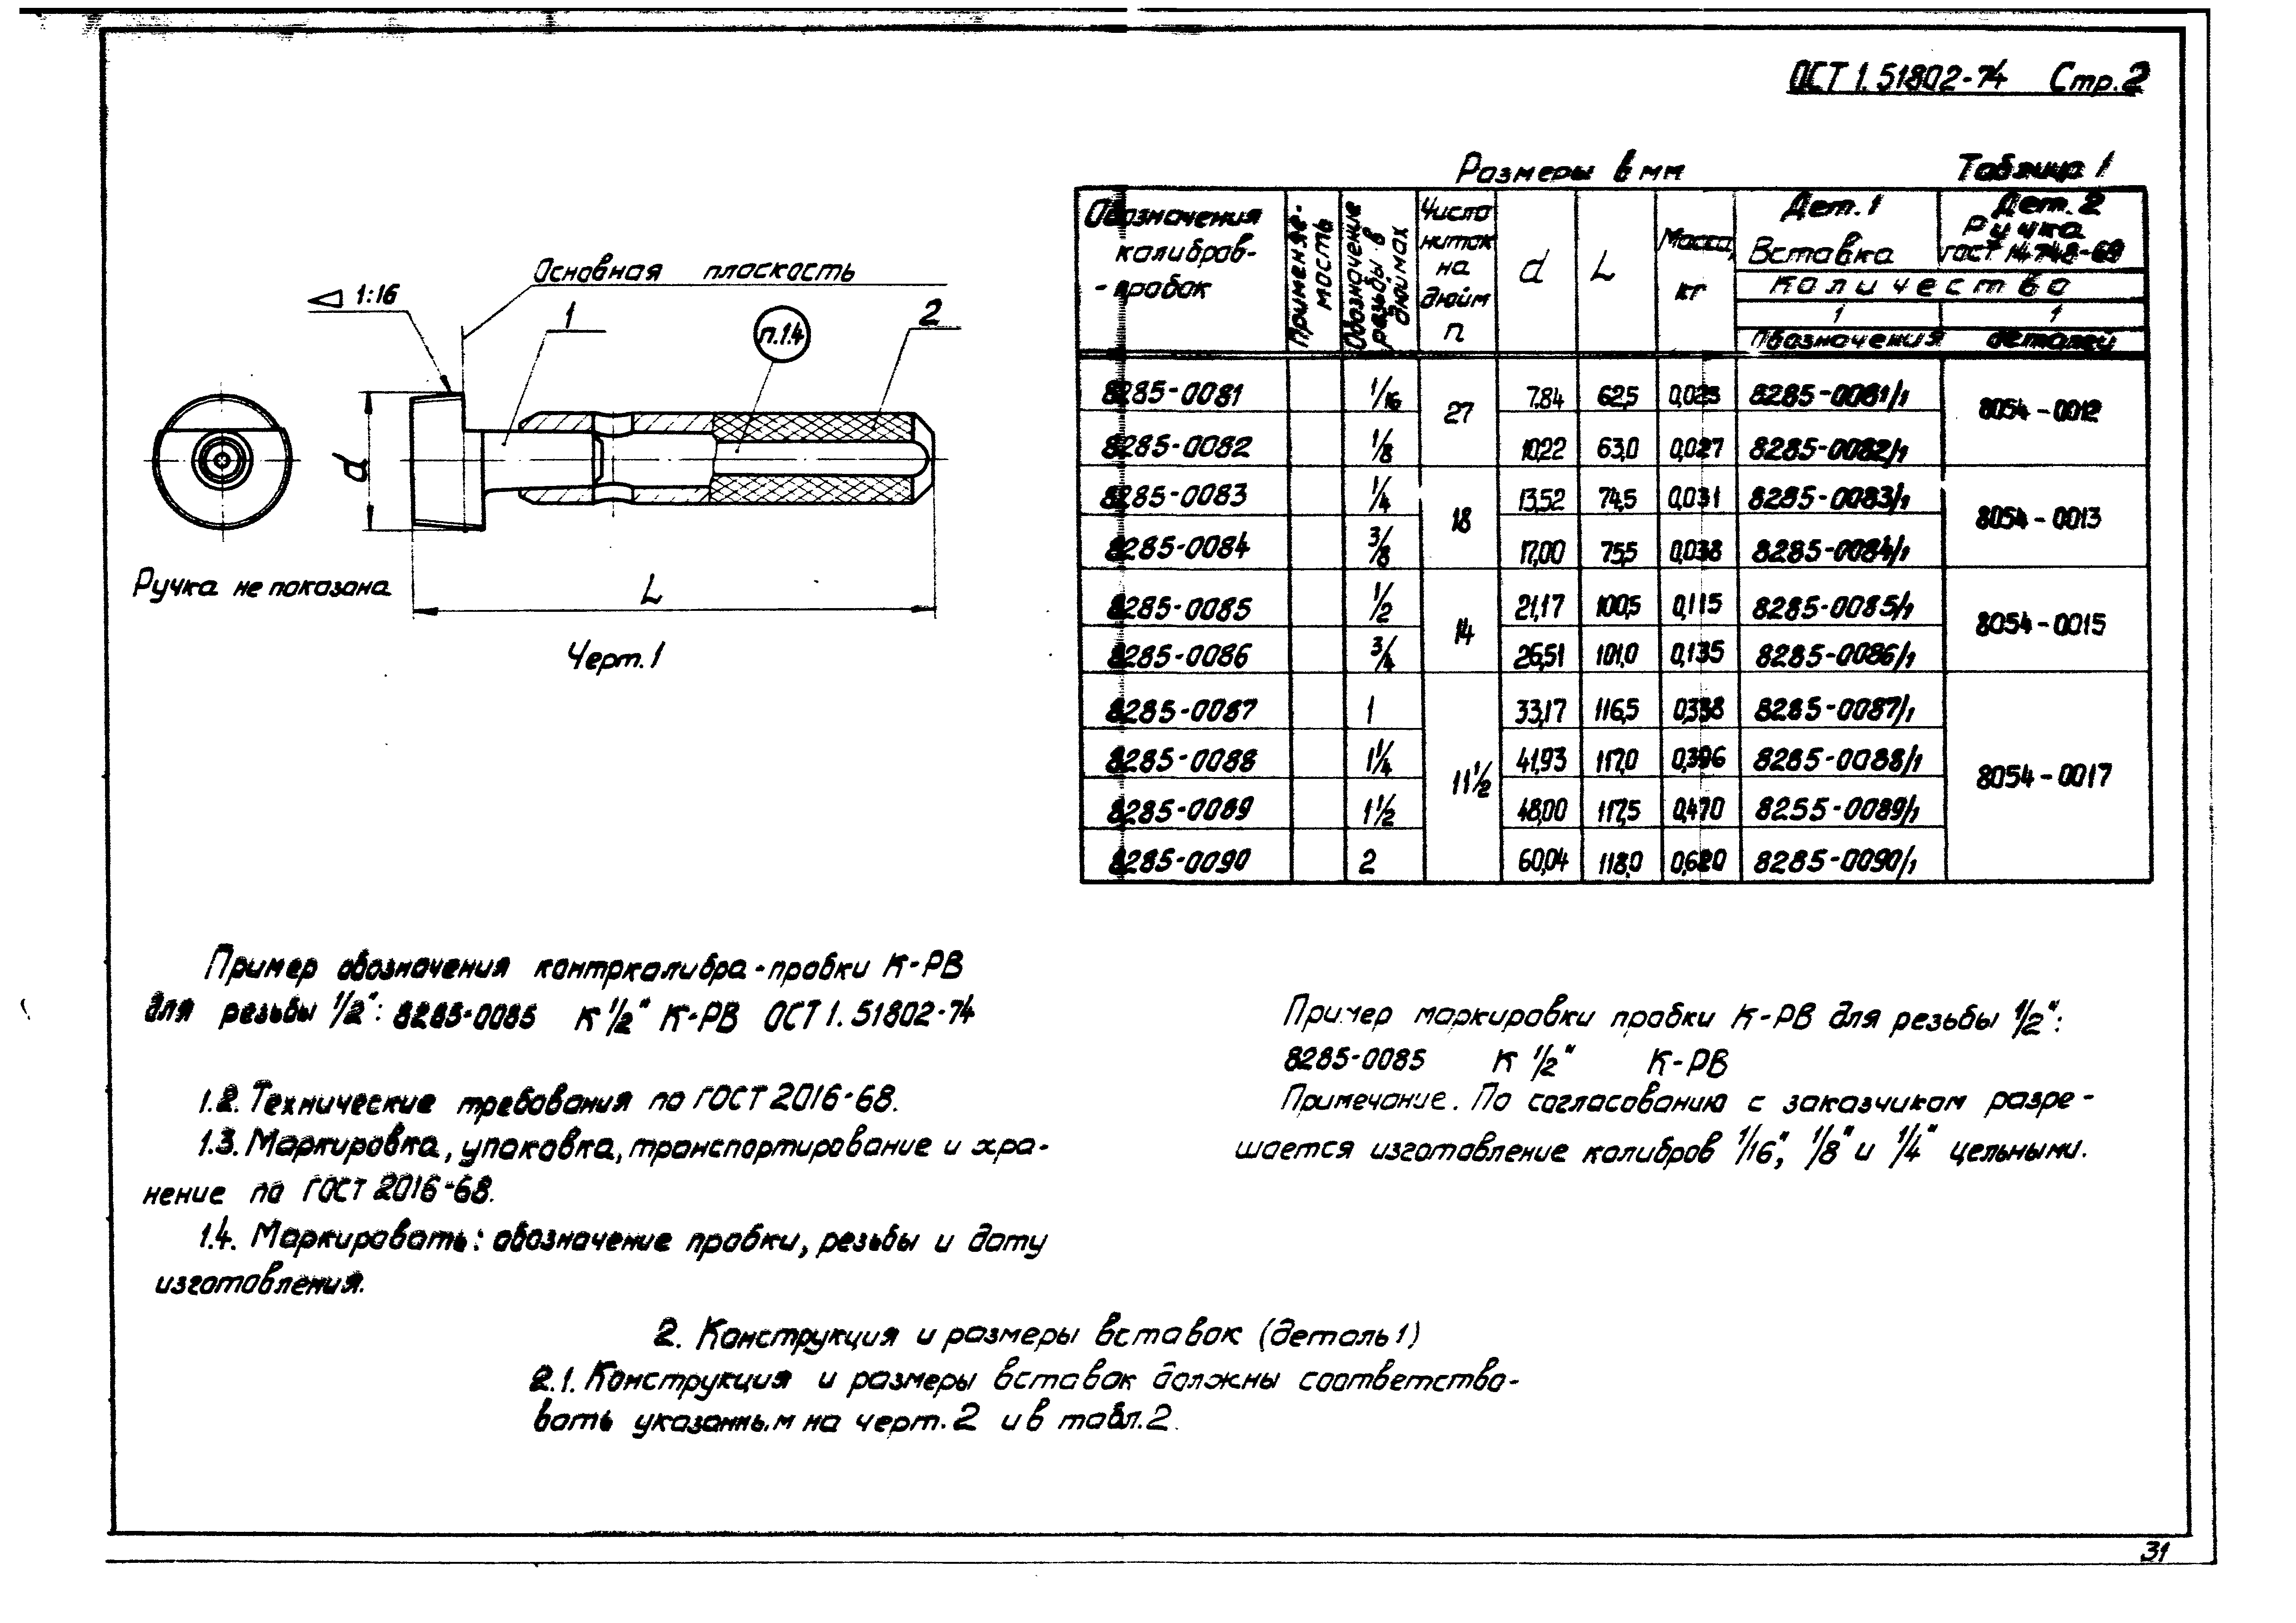 ОСТ 1.51802-74 Стр.2
Основная плоскость
1:16
1
п.1.4
2
d
L
Ручка не показана
Черт.1
Размеры в мм Таблица 1
Обозначения калибров- -пробок
Применяе- мость
Обозначение резьбы в дюймах
Число ниток на дюйм n
d
L
Масса, кг
Дет.1 Вставка
Дет.2 Ручка ГОСТ 14748-69
Количество
1 1
Обозначения деталей
8285-0081 1/16 27 7,84 62,5 0,023 8285-0081/1 8054-0012
8285-0082 1/8 10,22 63,0 0,027 8285-0082/1
8285-0083 1/4 18 13,52 74,5 0,031 8285-0083/1 8054-0013
8285-0084 3/8 17,00 75,5 0,038 8285-0084/1
8285-0085 1/2 14 21,17 100,5 0,115 8285-0085/1 8054-0015
8285-0086 3/4 26,51 101,0 0,135 8285-0086/1
8285-0087 1 11 1/2 33,17 116,5 0,338 8285-0087/1 8054-0017
8285-0088 1 1/4 41,93 117,0 0,396 8285-0088/1
8285-0089 1 1/2 48,00 117,5 0,470 8255-0089/1
8285-0090 2 60,04 118,0 0,620 8285-0090/1
Пример обозначения контркалибра-пробки К-РВ
для резьбы 1/2": 8285-0085 К 1/2" К-РВ ОСТ 1.51802-74
1.2. Технические требования по ГОСТ 2016-68.
1.3. Маркировка, упаковка, транспортирование и хра-
нение по ГОСТ 2016-68.
1.4. Маркировать: обозначение пробки, резьбы и дату
изготовления.
Пример маркировки пробки К-РВ для резьбы 1/2":
8285-0085 К 1/2" К-РВ
Примечание. По согласованию с заказчиком разре-
шается изготовление калибров 1/16", 1/8" и 1/4" цельными.
2. Конструкция и размеры вставок (деталь 1)
2.1. Конструкция и размеры вставок должны соответство-
вать указанным на черт. 2 и в табл. 2.
31